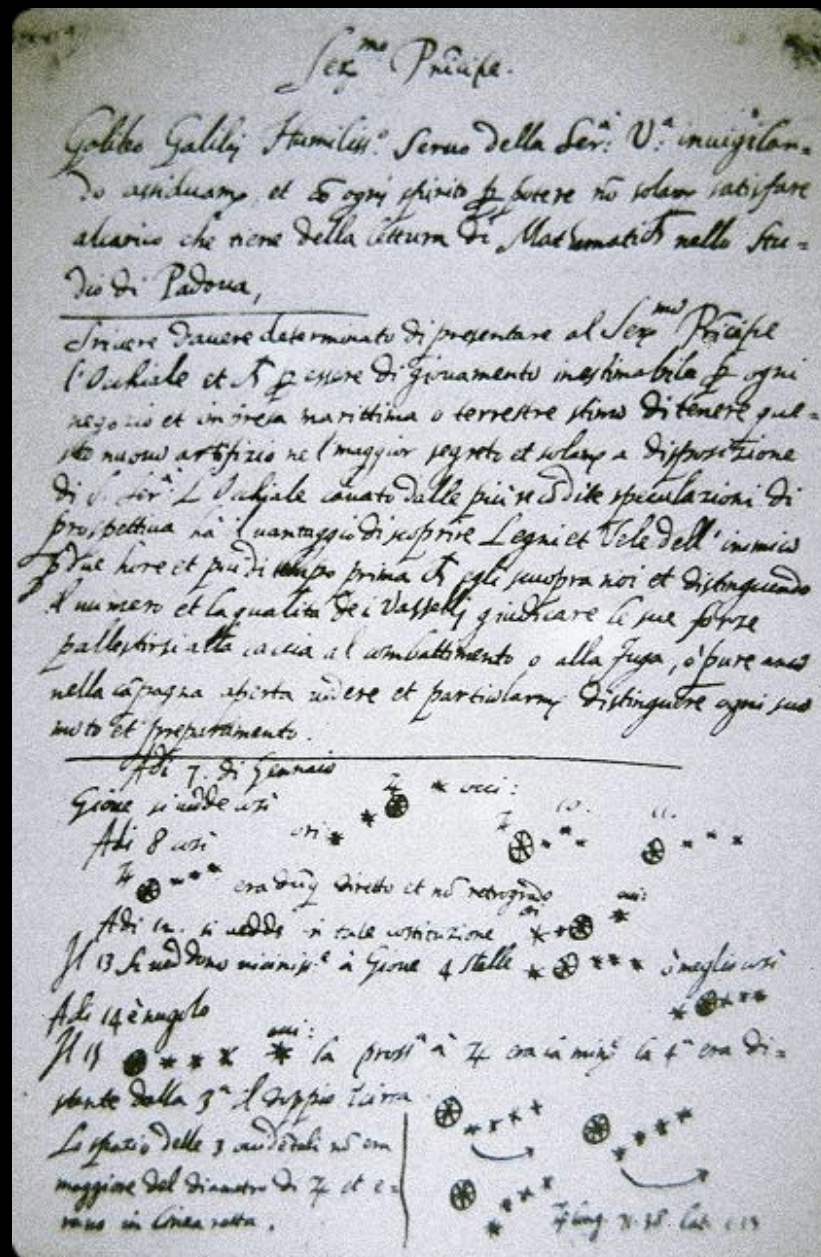 Ser.mo Principe.
Galileo Galilei Humiliss.o Servo della Ser.a V.a invigilan=
do assiduam.te, et cō ogni spirito p potere nō solam.te satisfare
alcarico che tiene della lettura di Mathematich nello Stu=
dio di Padova,
Scrivere davere determinato di presentare al Ser.mo Principe
l'Occhiale et p essere di giovamento inestimabile p ogni
negozio et impresa marittima o terrestre stimo di tenere que=
sto nuovo artifizio nel maggior segreto et solam.te a disposizione
di S. Ser.a L'Occhiale cavato dalle più recōdite speculazioni di
prospettiva hà il vantaggio di scoprire Legni et Vele dell'inimico
p due hore et più di tempo prima ch egli scuopra noi et distinguendo
il numero et la qualità dei Vasselli giudicare le sue forze
pallestirsi alla caccia al combattimento o alla fuga, ò pure anco
nella cāpagna aperta vedere et particolarm.te distinguere ogni suo
moto et preparamento.
Adi 7. di Gennaio
Gione si vede così ♃ occi:
Adi 8 così ori ♃ 10. 11.
♃ era dūq diretto et nō retrogrado
Adi 12. si vedde in tale costituzione
Il 13 si veddono viciniss.e à Giove 4 stelle ò meglio così
Adi 14 è nugolo
Il 15 la pross.a à ♃ era la min.e la 4.a era di=
stante dalla 3.a il doppio circa
Lo spazio delle 3 occidētali nō era
maggiore del diametro di ♃ et e=
rano in linea retta.
♃ long. 71.38 Lat. 1.13